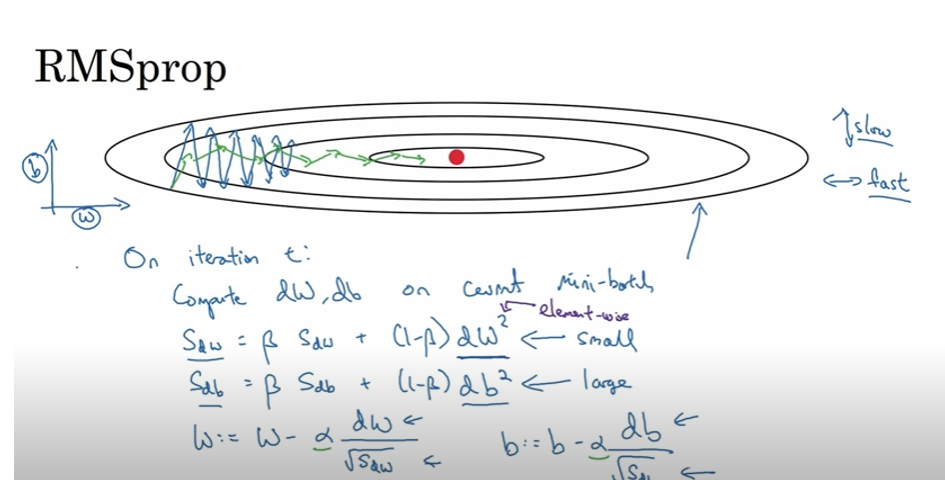 RMSprop
slow
fast
b
w
On iteration t:
Compute dW, db on current mini-batch
element-wise
Sdw = β Sdw + (1-β) dW² ← small
Sdb = β Sdb + (1-β) db² ← large
W := W - α dW/√Sdw b := b - α db/√Sdb